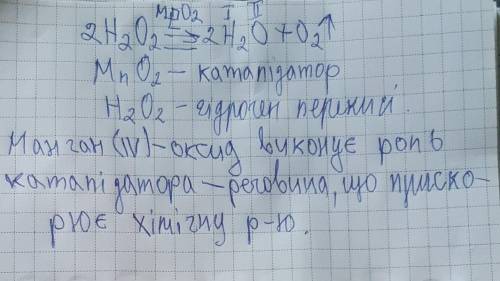 MnO₂ I II
2H₂O₂ ⇄ 2H₂O + O₂↑
MnO₂ – каталізатор
H₂O₂ – гідроген пероксид.
Манган (IV) – оксид виконує роль
каталізатора – речовина, що приско-
рює хімічну р-ю.